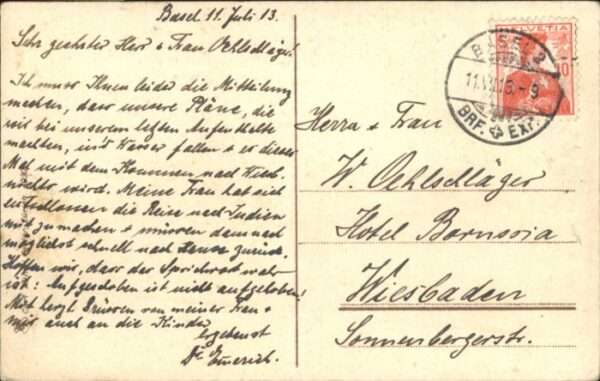 Basel 11. Juli 13.
Sehr geehrter Herr + Frau Oehlschläger!
Ich muss Ihnen leider die Mitteilung
machen, dass unsere Pläne, die
wir bei unserem letzten Aufenthalte
machten, ins Wasser fallen + es dieses
Mal mit dem Kommen nach Wiesb.
nichts wird. Meine Frau hat sich
entschlossen die Reise nach Indien
mitzumachen + müssen demnach
möglichst schnell nach Hause zurück.
Hoffen wir, dass das Sprichwort wahr
ist: Aufgeschoben ist nicht aufgehoben!
Mit herzl. Grüssen von meiner Frau +
mir auch an die Kinder
ergebenst
Dr. Emerich.
HELVETIA
10
BASEL 2
11.VII.13.-9
BRF. EXP.
Herrn + Frau
W. Oehlschläger
Hotel Borussia
Wiesbaden
Sonnenbergerstr.